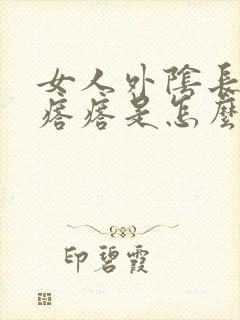 女人外陰長
痞痞是怎麼
印碧霞